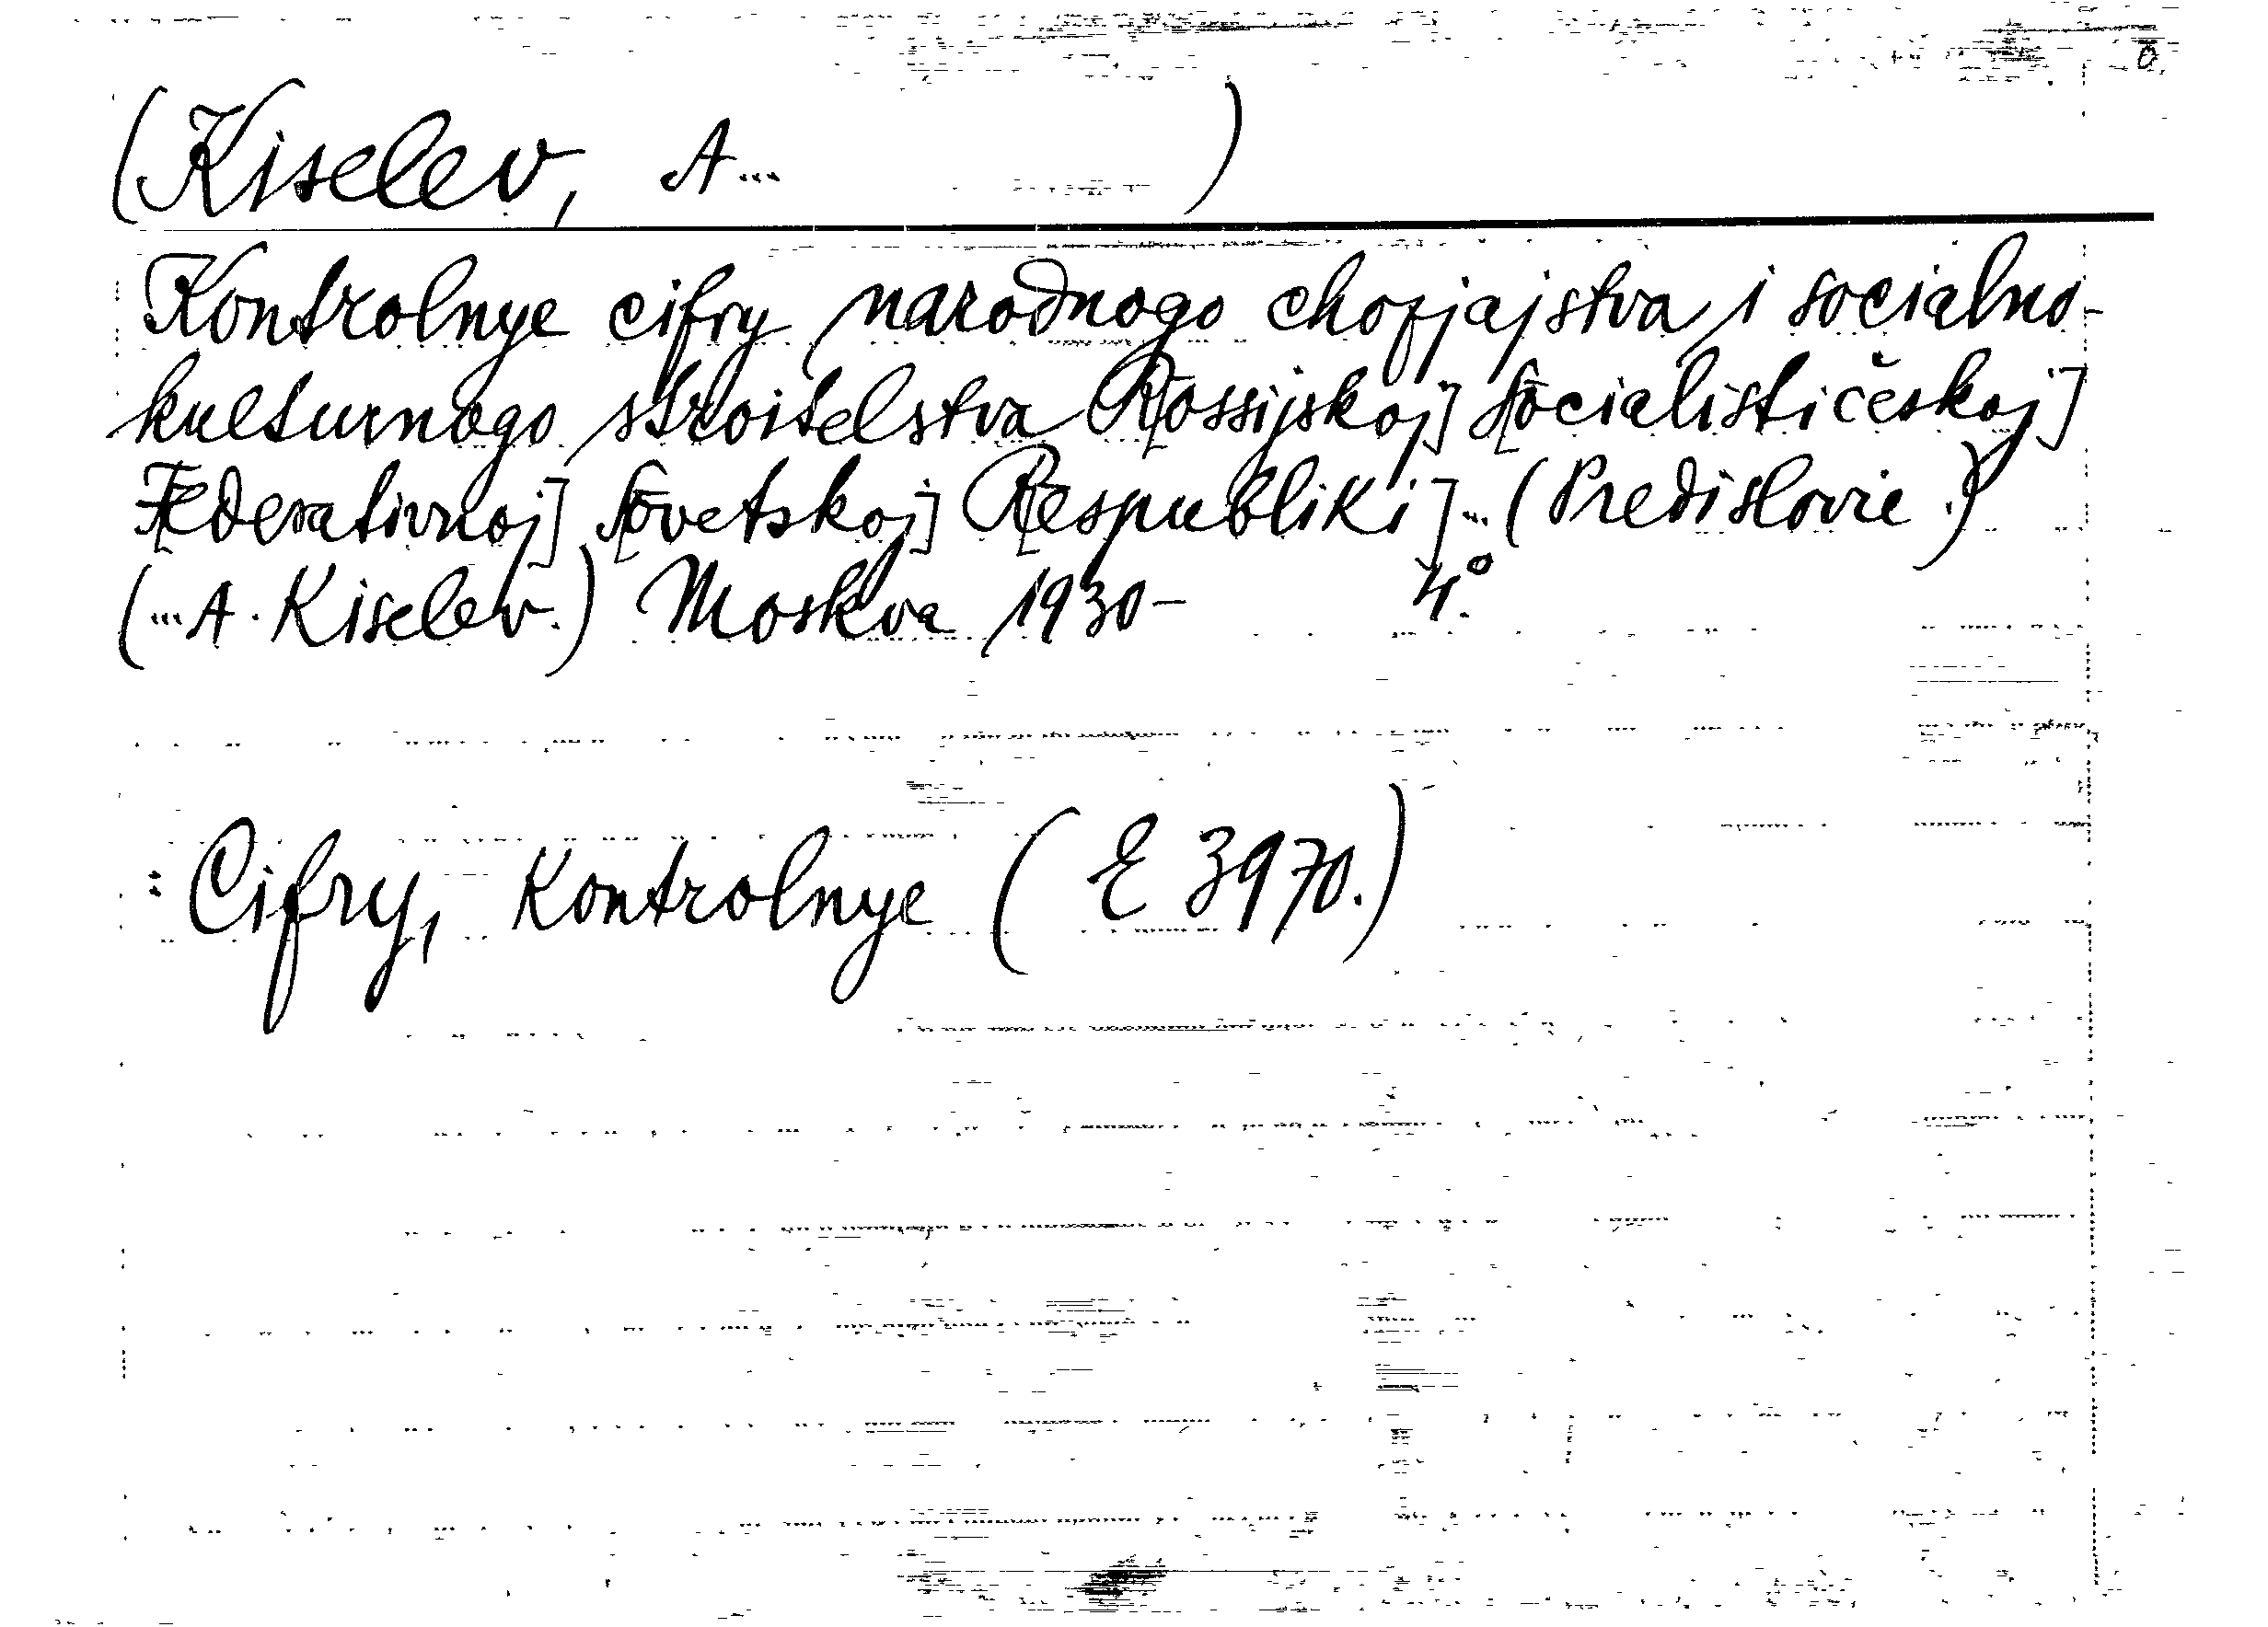 (Kiselev, A... )
Kontrolnye cifry narodnogo chozjajstva i socialno-
kulturnogo stroitelstva R[ossijskoj] S[ocialističeskoj]
F[ederativnoj] S[ovetskoj] R[espubliki]... (Predislovie.)
(... A. Kiselev.) Moskva 1930- 4°.
: Cifry, Kontrolnye (E 3970.)